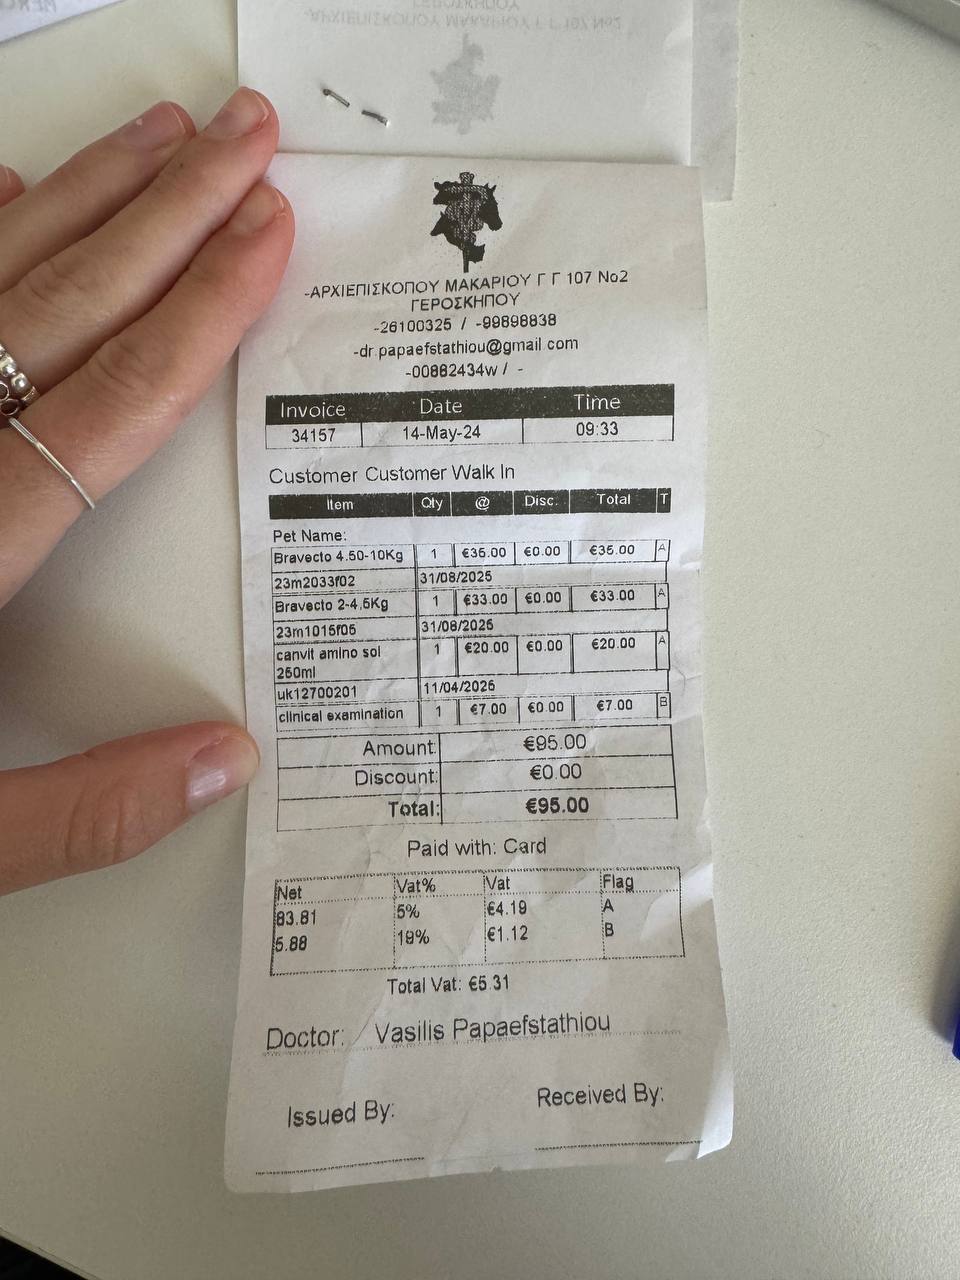 -ΑΡΧΙΕΠΙΣΚΟΠΟΥ ΜΑΚΑΡΙΟΥ Γ Γ 107 Νο2
ΓΕΡΟΣΚΗΠΟΥ
-26100325 / -99898838
-dr.papaefstathiou@gmail.com
-00882434w / -
Invoice Date Time
34157 14-May-24 09:33
Customer Customer Walk In
Item Qty @ Disc. Total T
Pet Name:
Bravecto 4.50-10Kg 1 €35.00 €0.00 €35.00 A
23m2033f02 31/08/2025
Bravecto 2-4,5Kg 1 €33.00 €0.00 €33.00 A
23m1015f05 31/08/2025
canvit amino sol 1 €20.00 €0.00 €20.00 A
250ml
uk12700201 11/04/2025
clinical examination 1 €7.00 €0.00 €7.00 B
Amount: €95.00
Discount: €0.00
Total: €95.00
Paid with: Card
Net Vat% Vat Flag
83.81 5% €4.19 A
5.88 19% €1.12 B
Total Vat: €5.31
Doctor: Vasilis Papaefstathiou
Issued By: Received By: